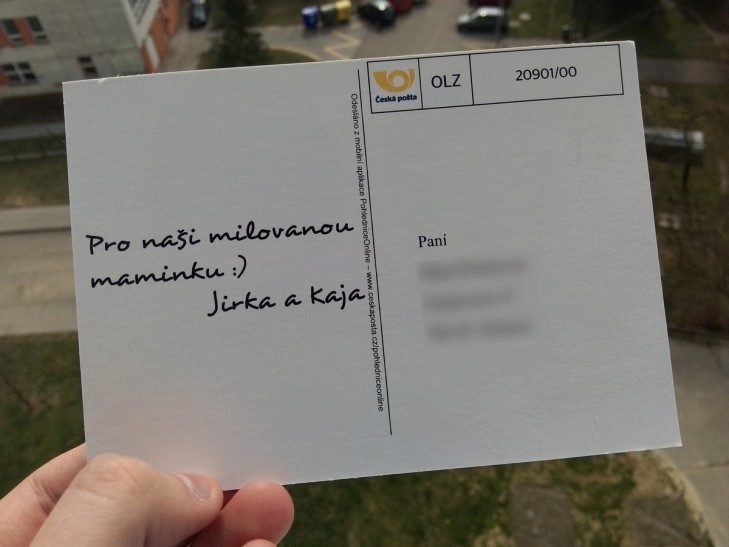 Pro naši milovanou
maminku :)
Jirka a Kaja
Odesláno z mobilní aplikace PohledniceOnline – www.ceskaposta.cz/pohledniceonline
Česká pošta
OLZ
20901/00
Paní